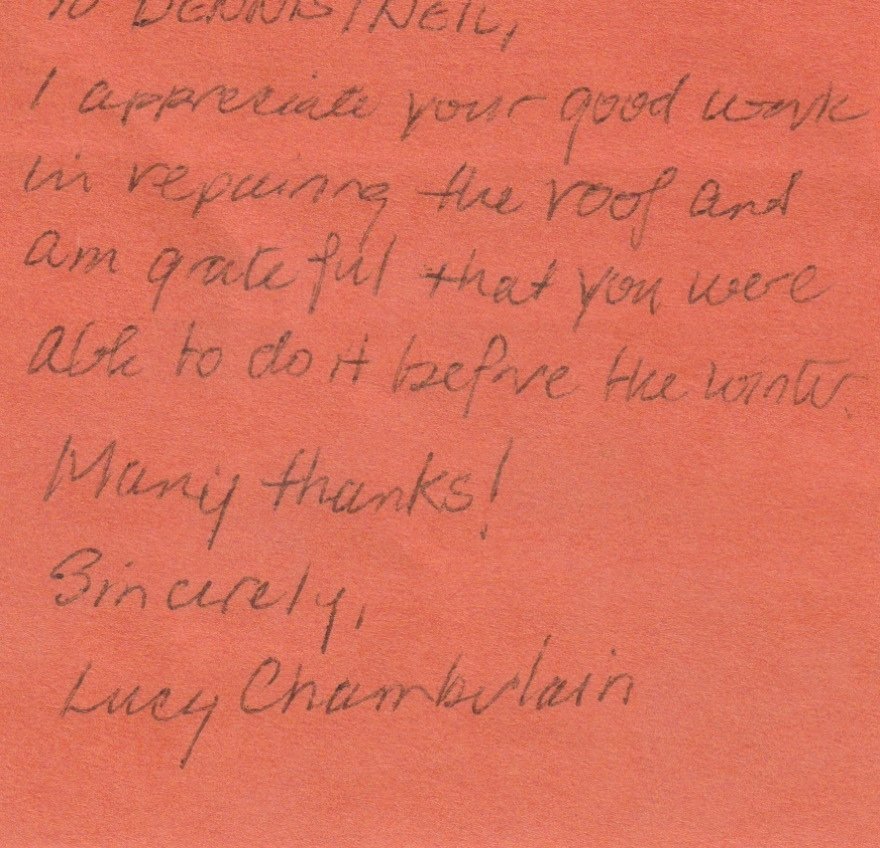 To DENNIS/NEIL,
I appreciate your good work
in repairing the roof and
am grateful that you were
able to do it before the winter.
Many thanks!
Sincerely,
Lucy Chamberlain